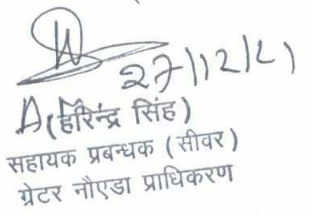 27/12/21
(हरिन्द्र सिंह)
सहायक प्रबन्धक (सीवर)
ग्रेटर नौएडा प्राधिकरण